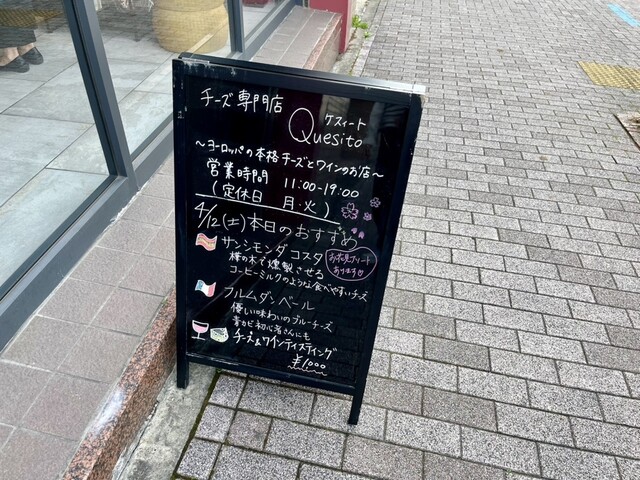 チーズ専門店
ケスィート
Quesito
～ヨーロッパの本格チーズとワインのお店～
営業時間 11:00-19:00
(定休日 月・火)
4/12(土)本日のおすすめ
サンシモンダコスタ
樺の木で燻製させる
コーヒーミルクのような食べやすいチーズ
お花見プレート
あります
フルムダンベール
優しい味わいのブルーチーズ
青カビ初心者さんにも
チーズ&ワインテイスティング
¥1000